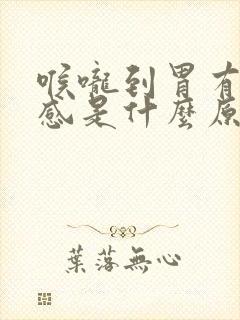 喉嚨到胃有
感是什麼原
葉落無心